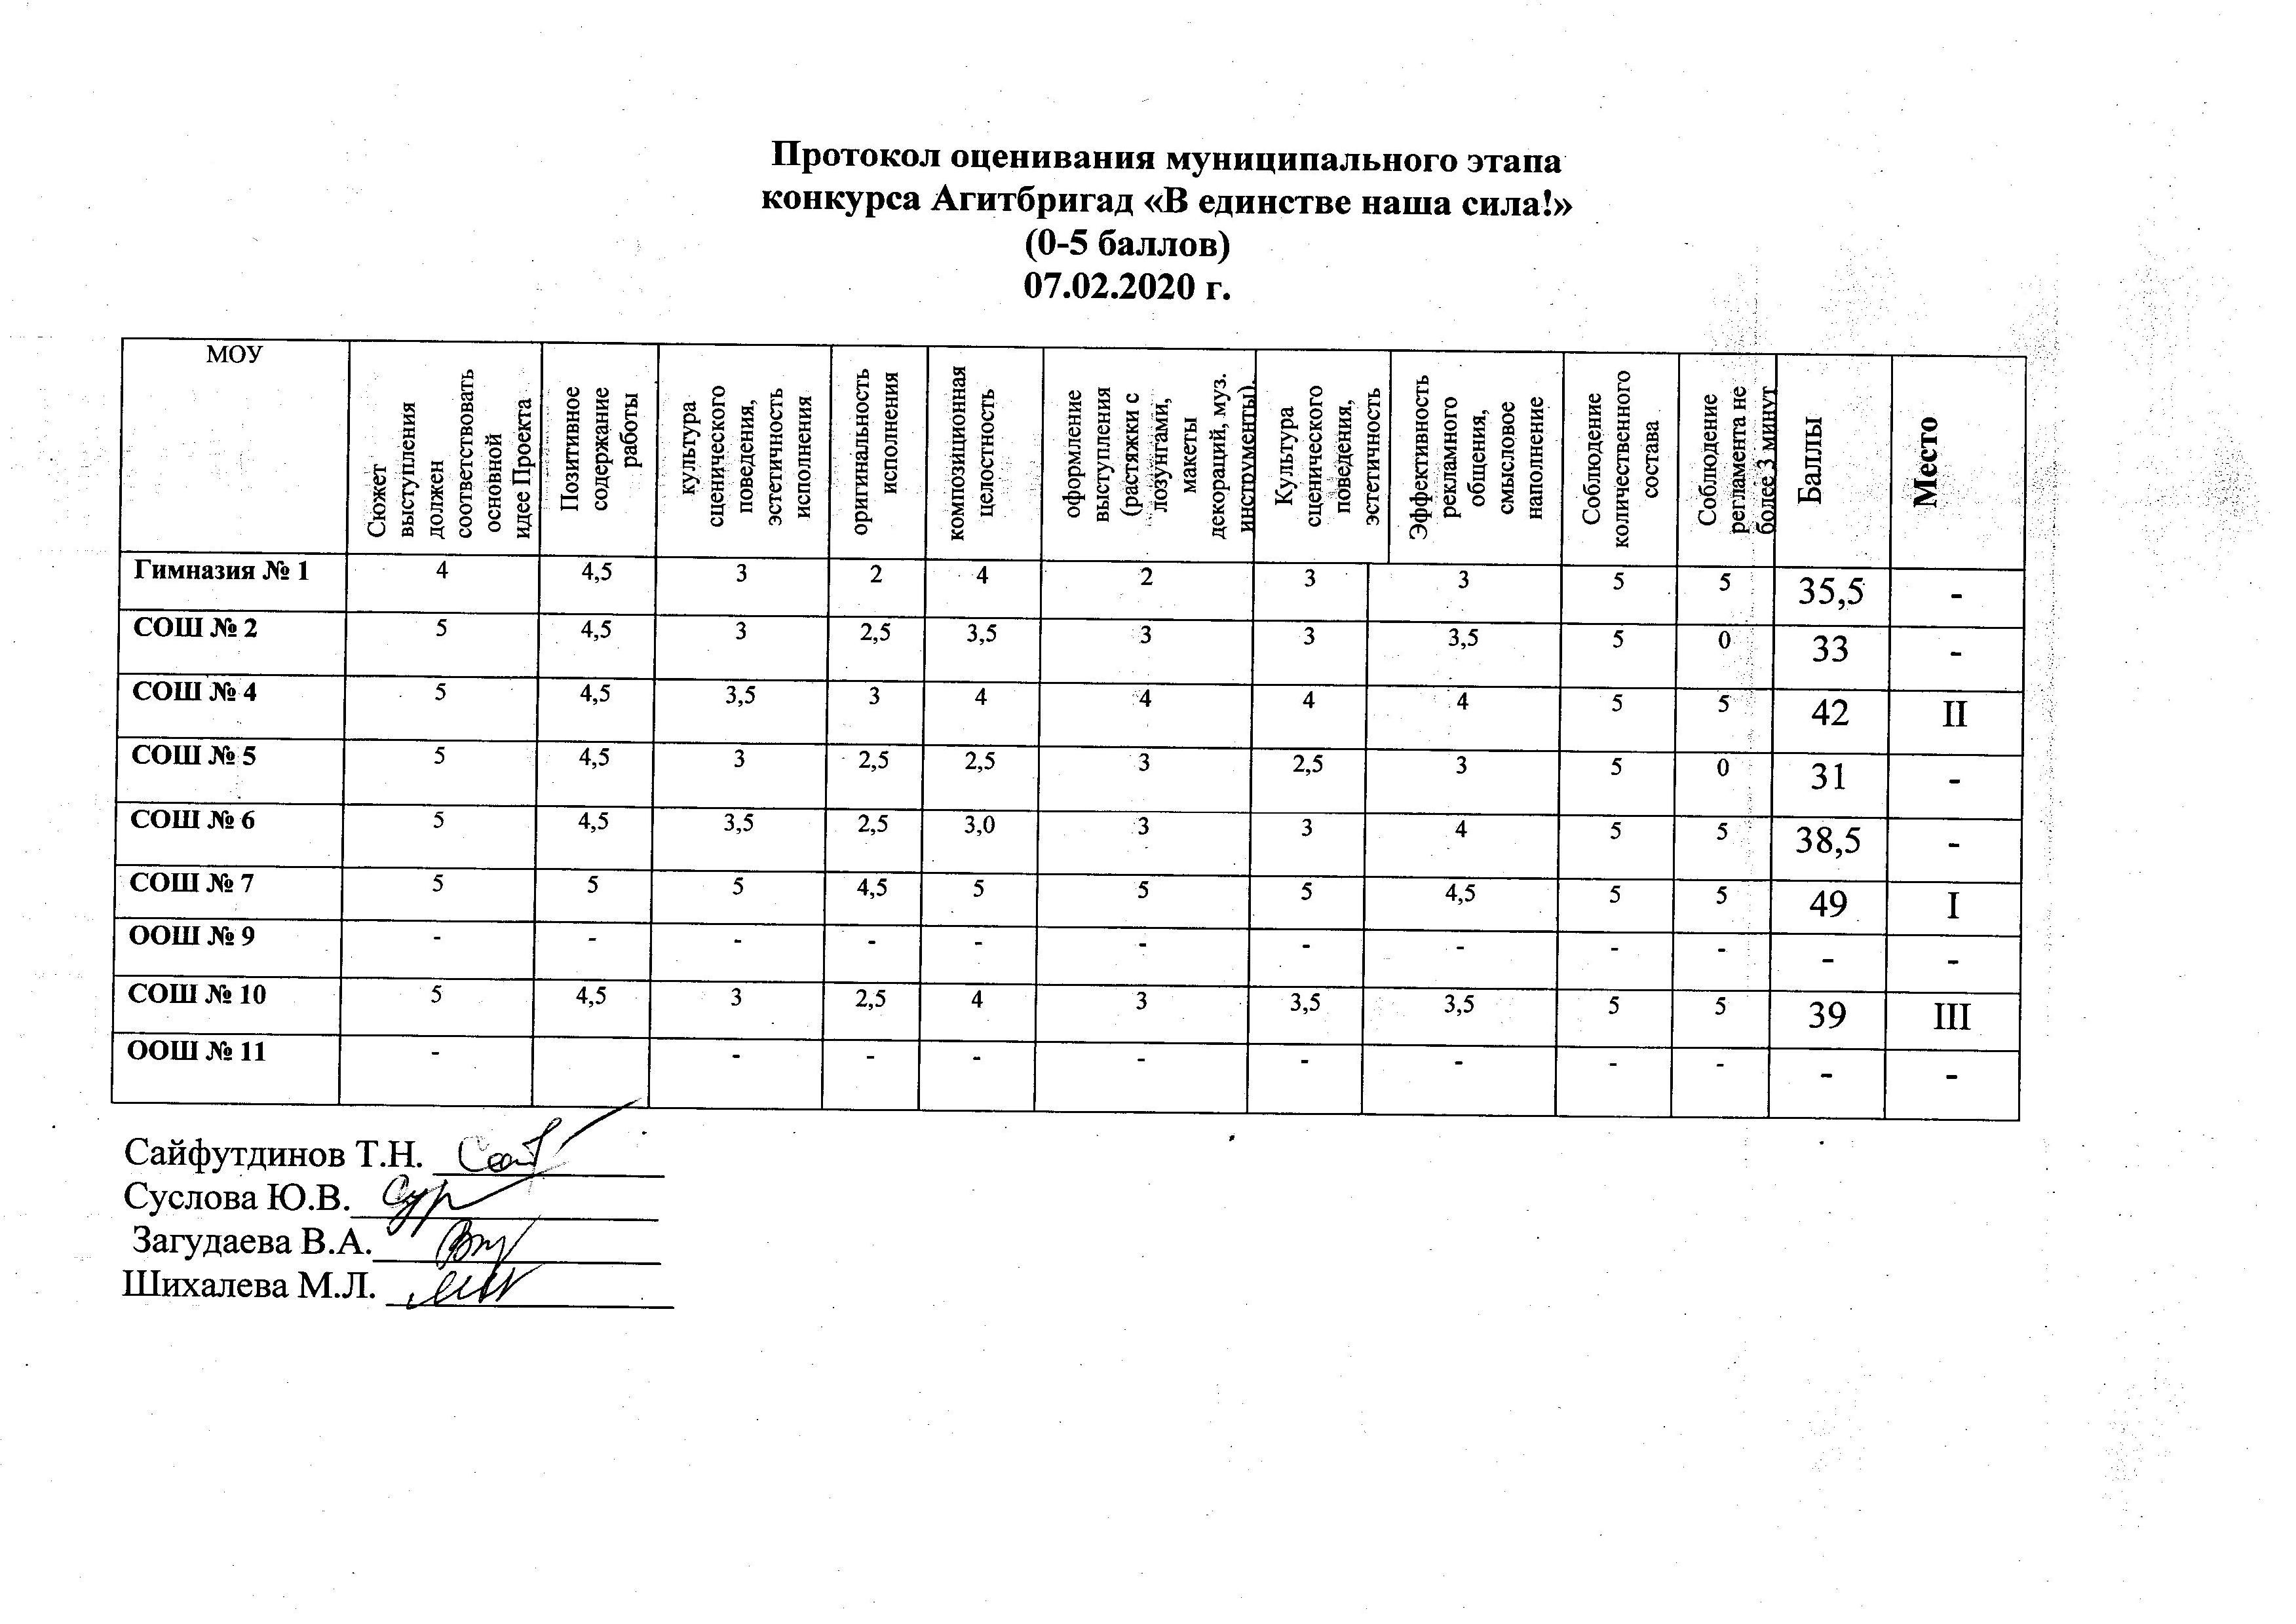 Протокол оценивания муниципального этапа
конкурса Агитбригад «В единстве наша сила!»
(0-5 баллов)
07.02.2020 г.
МОУ
Сюжет
выступления
должен
соответствовать
основной
идее Проекта
Позитивное
содержание
работы
культура
сценического
поведения,
эстетичность
исполнения
оригинальность
исполнения
композиционная
целостность
оформление
выступления
(растяжки с
лозунгами,
макеты
декораций, муз.
инструменты).
Культура
сценического
поведения,
эстетичность
Эффективность
рекламного
общения,
смысловое
наполнение
Соблюдение
количественного
состава
Соблюдение
регламента не
более 3 минут
Баллы
Место
Гимназия № 1 4 4,5 3 2 4 2 3 3 5 5 35,5 -
СОШ № 2 5 4,5 3 2,5 3,5 3 3 3,5 5 0 33 -
СОШ № 4 5 4,5 3,5 3 4 4 4 4 5 5 42 II
СОШ № 5 5 4,5 3 2,5 2,5 3 2,5 3 5 0 31 -
СОШ № 6 5 4,5 3,5 2,5 3,0 3 3 4 5 5 38,5 -
СОШ № 7 5 5 5 4,5 5 5 5 4,5 5 5 49 I
ООШ № 9 - - - - - - - - - - - -
СОШ № 10 5 4,5 3 2,5 4 3 3,5 3,5 5 5 39 III
ООШ № 11 - - - - - - - - - - -
Сайфутдинов Т.Н.
Суслова Ю.В.
Загудаева В.А.
Шихалева М.Л.